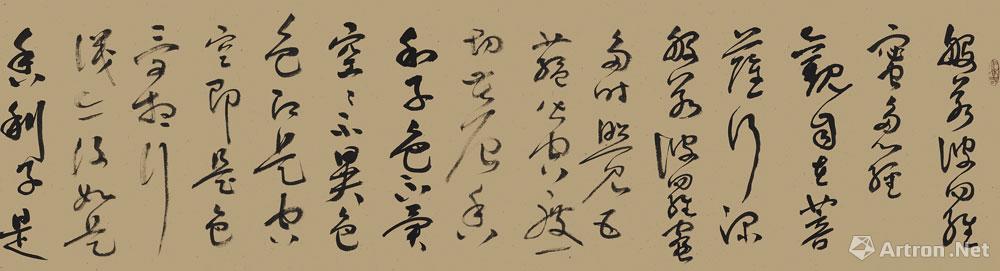 般若波羅
蜜多心經
觀自在菩
薩行深
般若波羅蜜
多時照見五
蘊皆空度一
切苦厄舍
利子色不異
空〻不異色
色即是空
空即是色
受想行
識亦復如是
舍利子是
Artron.Net